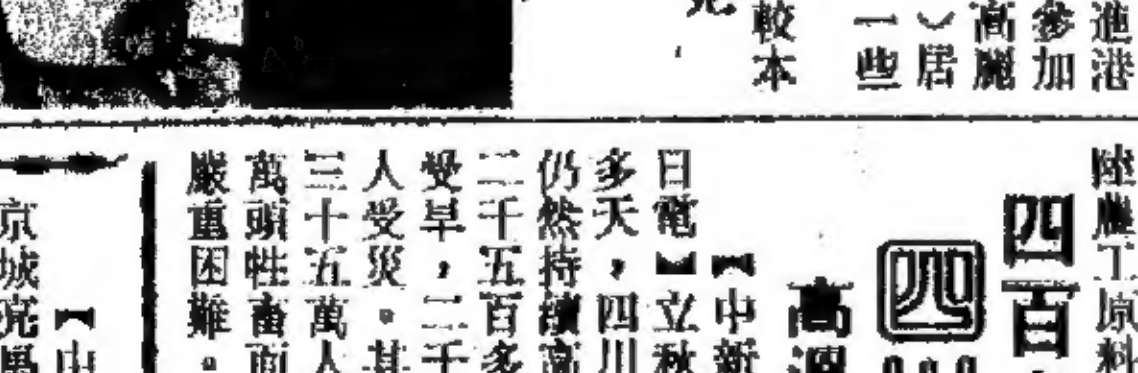 進港
參加
高麗
居
一些
較本
陸
工原料
四百
四
高溫
【中新
日電】立秋
多天，四川
仍然持續高
二千五百多
受旱，二千
人受災。其
三十五萬人
萬頭牲畜面
嚴重困難。
【中
京城亮